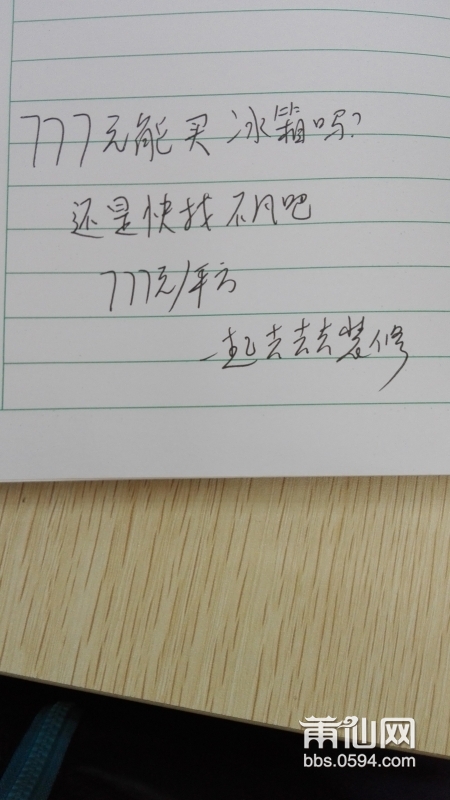 777元能买冰箱吗?
还是快找不凡吧
777元/平方
一起去去去装修
莆仙网
bbs.0594.com